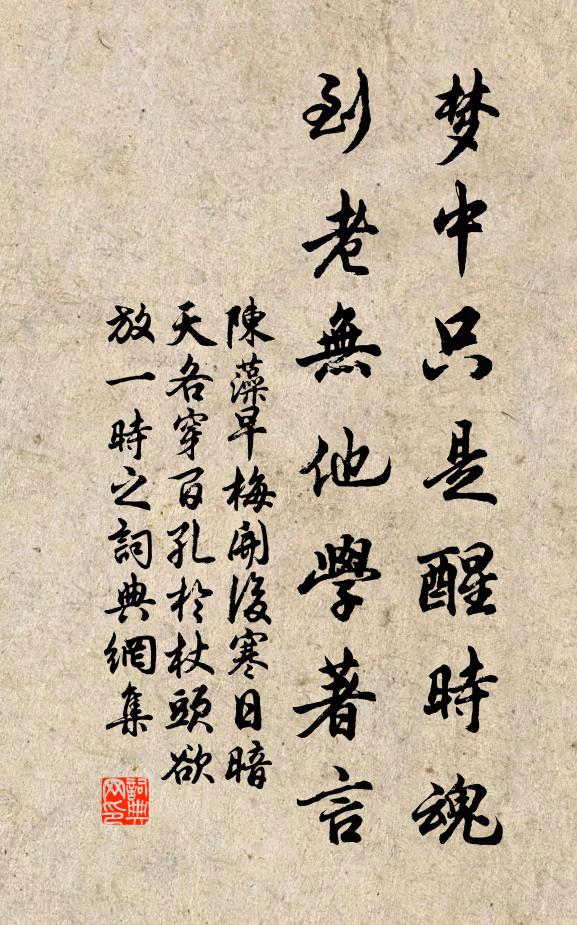 梦中只是醒時魂
到老無他學著言
陳藻早梅開後寒日暗
天各穿百孔於杖頭欲
放一時之詞典網集
詞典网印